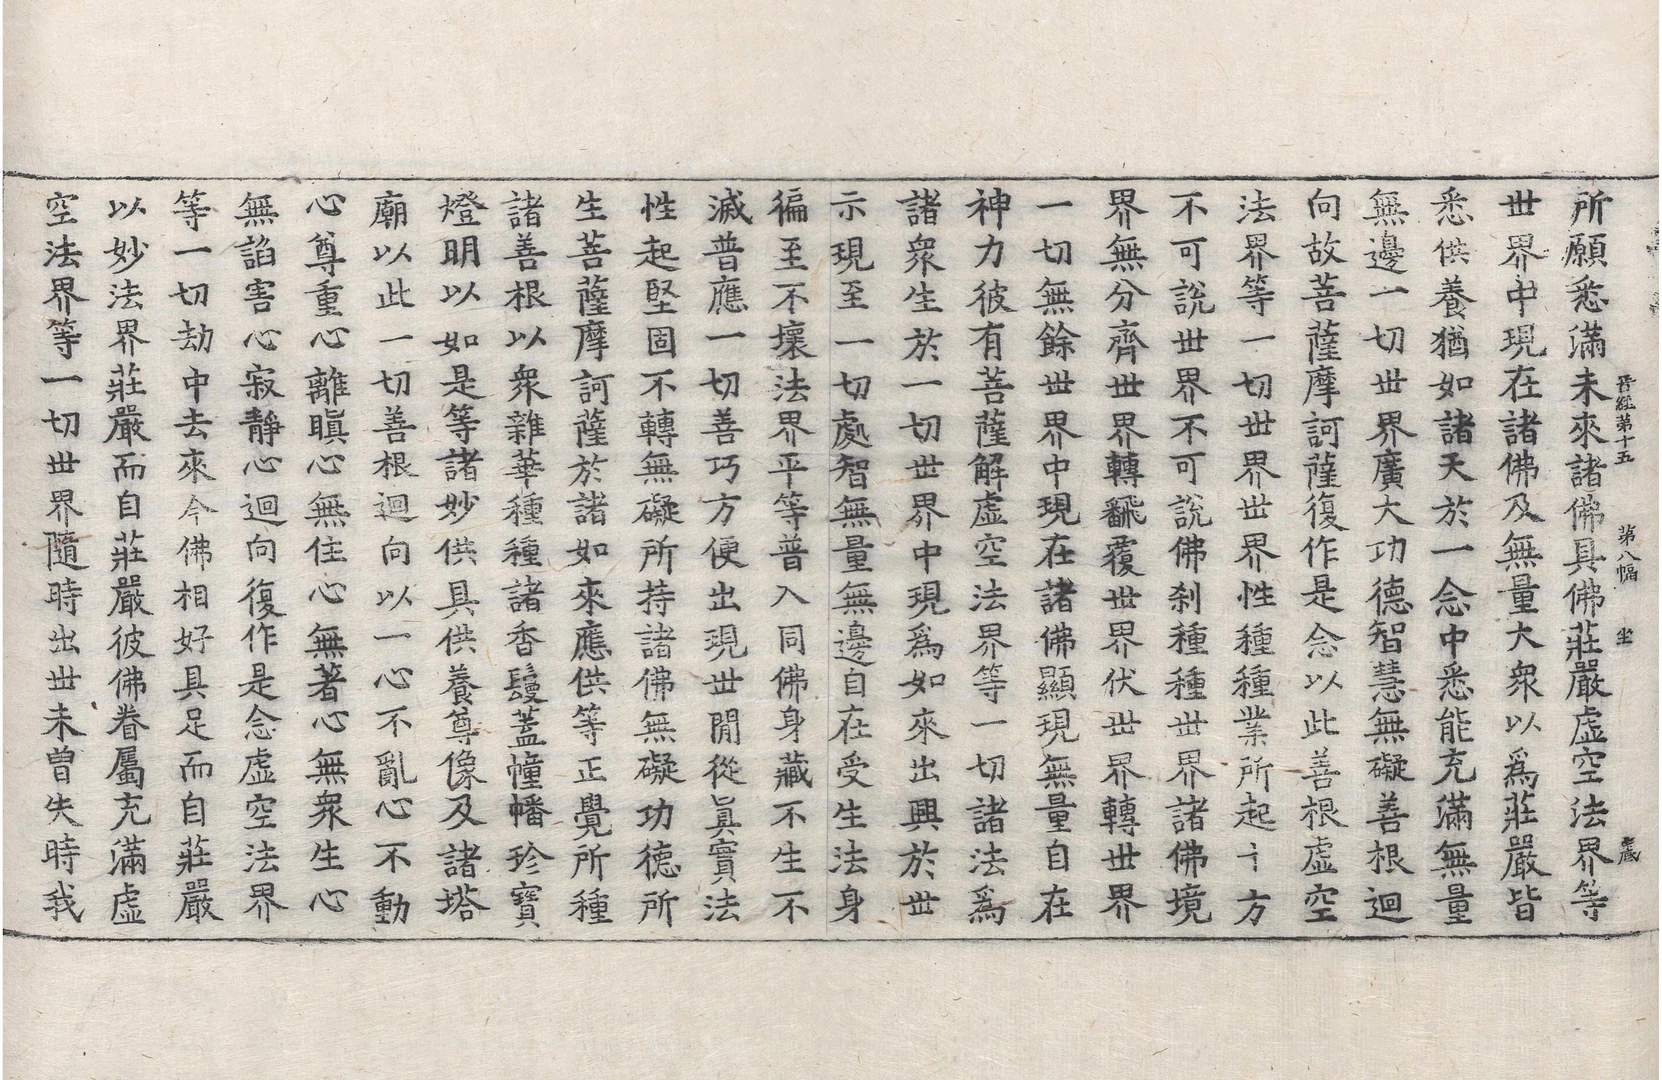 晉經第十五 第八幅 坐
所願悉滿未來諸佛具佛莊嚴虛空法界等
世界中現在諸佛及無量大衆以爲莊嚴皆
悉供養猶如諸天於一念中悉能充滿無量
無邊一切世界廣大功德智慧無礙善根迴
向故菩薩摩訶薩復作是念以此善根虛空
法界等一切世界世界性種種業所起十方
不可說世界不可說佛刹種種世界諸佛境
界無分齊世界轉飜覆世界伏世界轉世界
一切無餘世界中現在諸佛顯現無量自在
神力彼有菩薩解虛空法界等一切諸法爲
諸衆生於一切世界中現爲如來出興於世
示現至一切處智無量無邊自在受生法身
徧至不壞法界平等普入同佛身藏不生不
滅普應一切善巧方便出現世間從眞實法
性起堅固不轉無礙所持諸佛無礙功德所
生菩薩摩訶薩於諸如來應供等正覺所種
諸善根以衆雜華種種諸香鬘蓋幢幡珍寶
燈明以如是等諸妙供具供養尊像及諸塔
廟以此一切善根迴向以一心不亂心不動
心尊重心離瞋心無住心無著心無衆生心
無諂害心寂靜心迴向復作是念虛空法界
等一切劫中去來今佛相好具足而自莊嚴
以妙法界莊嚴而自莊嚴彼佛眷屬充滿虛
空法界等一切世界隨時出世未曾失時我